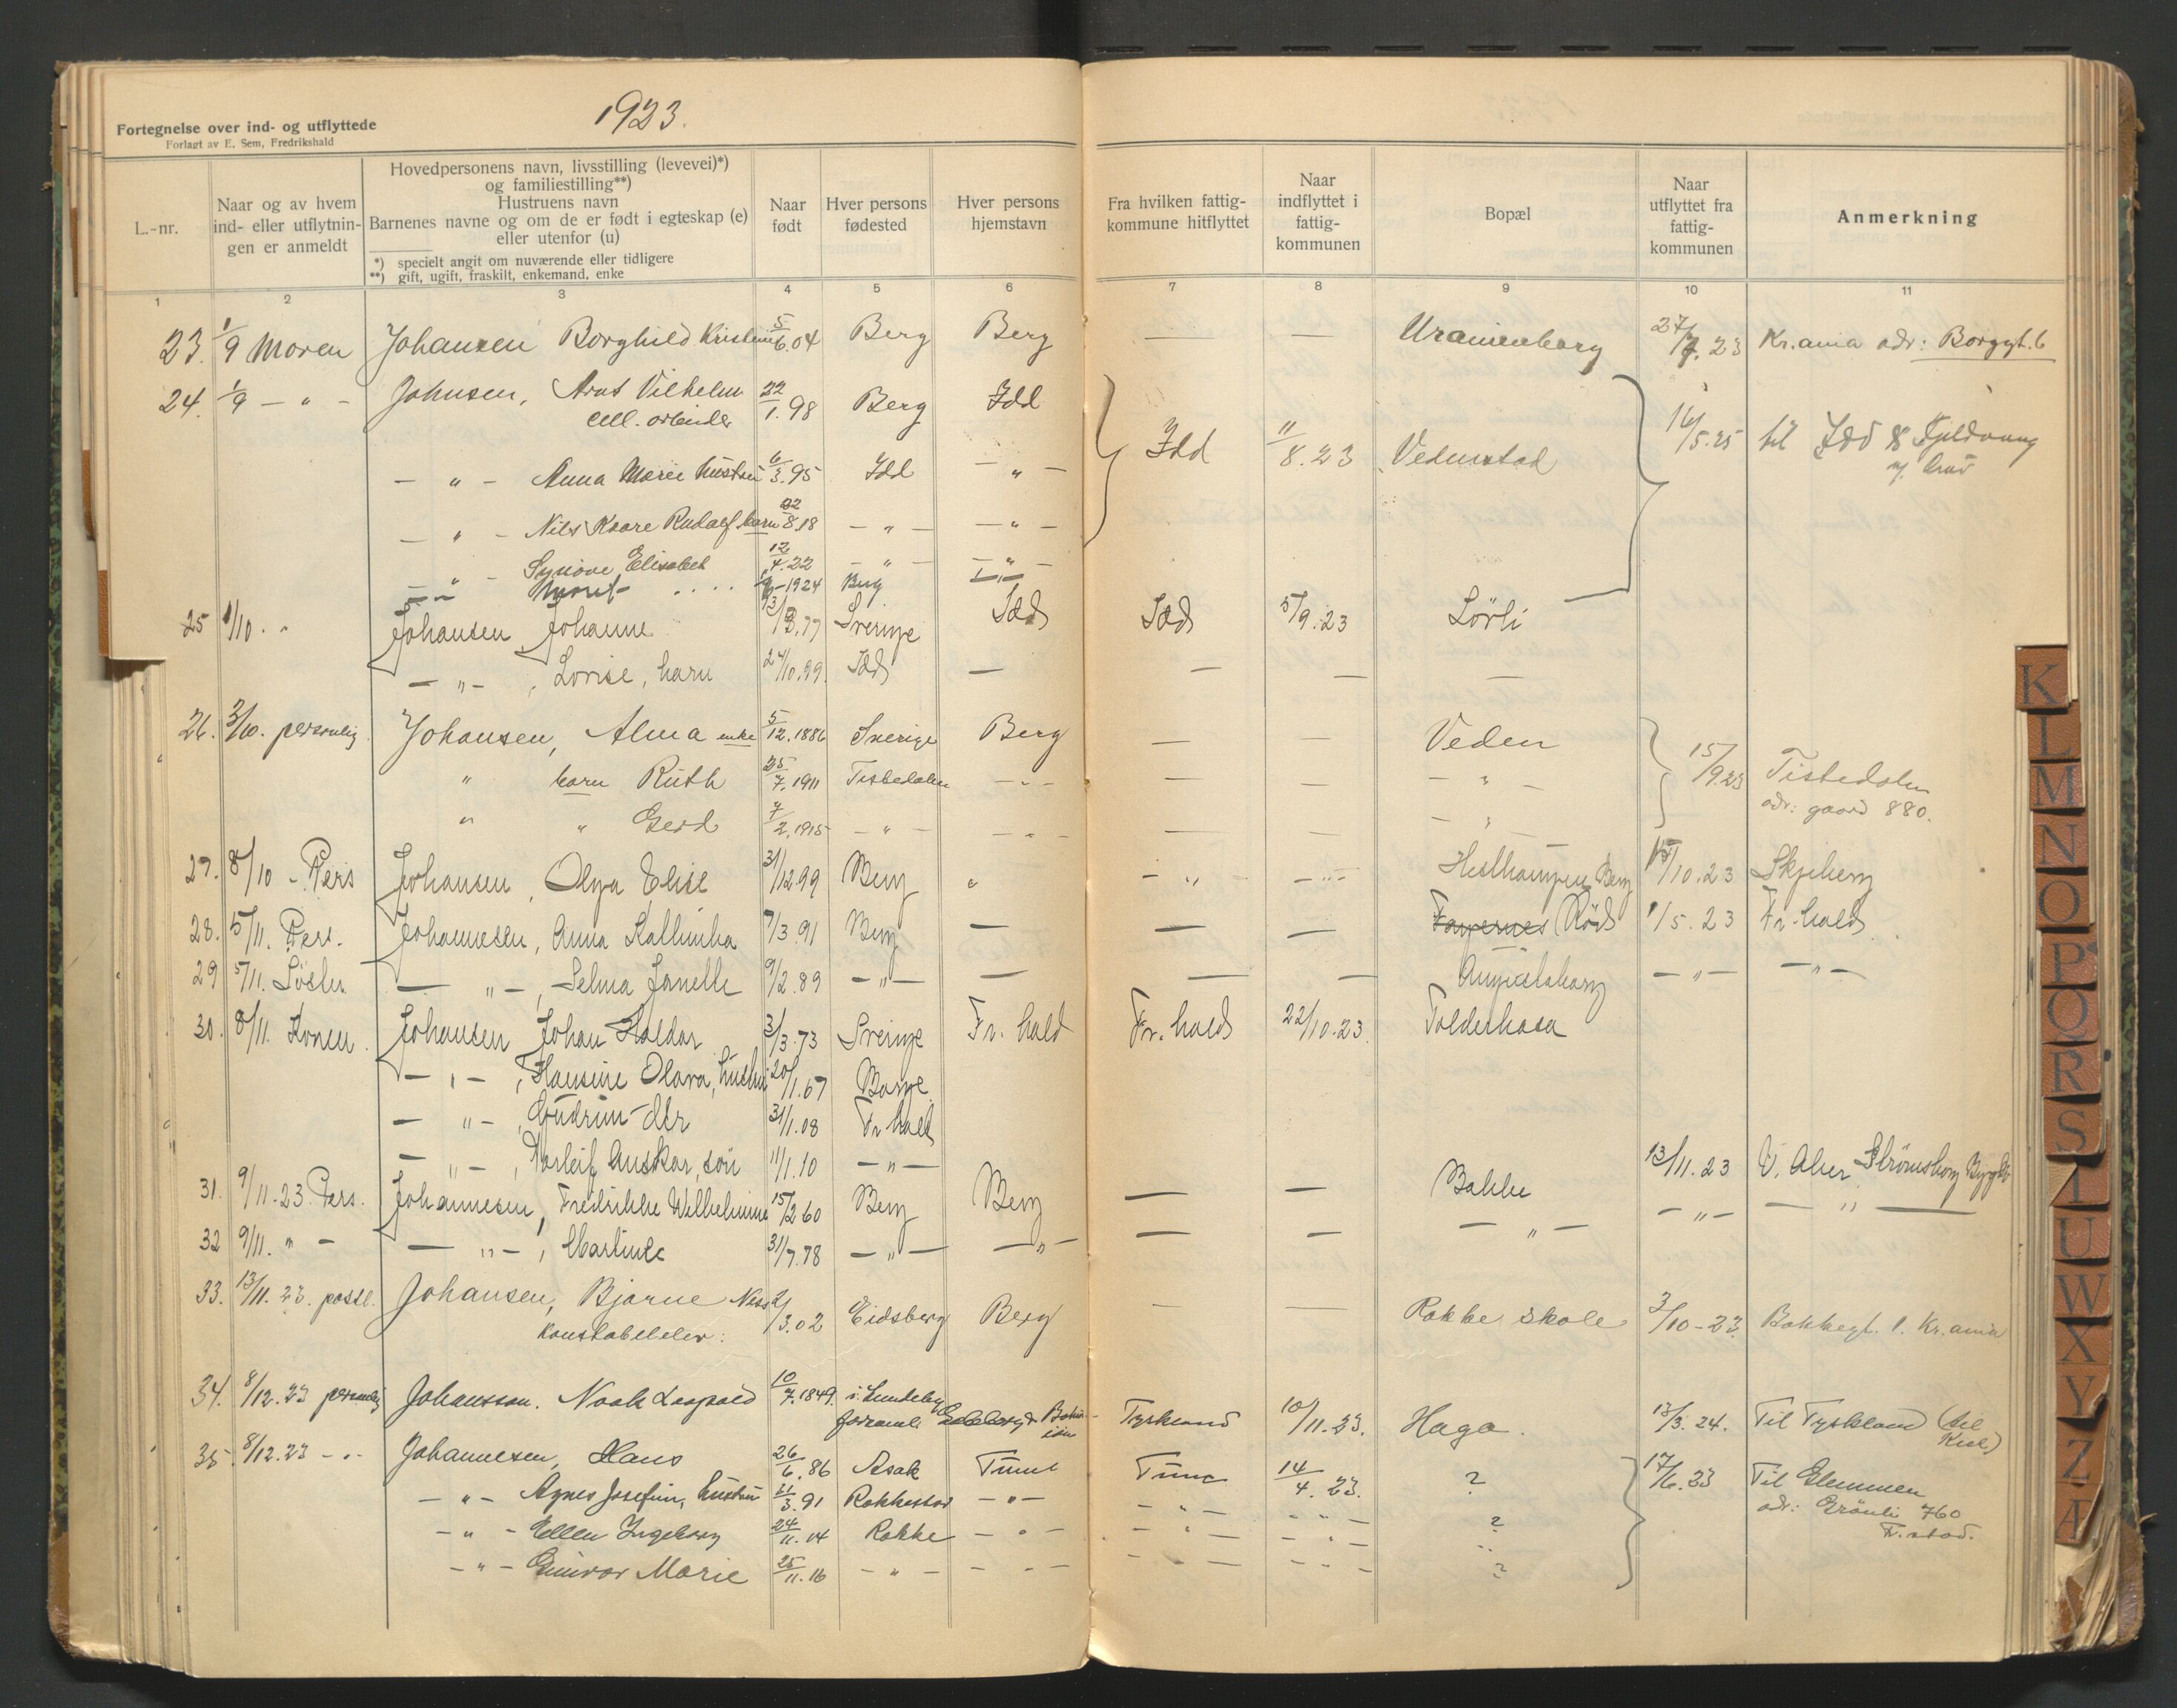 1923.
Fortegnelse over ind- og utflyttede
Forlagt av E. Sem, Fredrikshald
L.-nr.
Naar og av hvem
ind- eller utflytnin-
gen er anmeldt
Hovedpersonens navn, livsstilling (levevei)*)
og familiestilling**)
Hustruens navn
Barnenes navne og om de er født i egteskap (e)
eller utenfor (u)
*) specielt angit om nuværende eller tidligere
**) gift, ugift, fraskilt, enkemand, enke
Naar
født
Hver persons
fødested
Hver persons
hjemstavn
Fra hvilken fattig-
kommune hitflyttet
Naar
indflyttet i
fattig-
kommunen
Bopæl
Naar
utflyttet fra
fattig-
kommunen
Anmerkning
1 2 3 4 5 6 7 8 9 10 11
23. 1/9 Moren Johansen Borghild Kristine 5/6.04 Berg Berg — — Uranienborg 27/7.23 Kr.ania adr: Borggt. 6
24. 1/9 — " — Johnsen, Arnt Vilhelm 22/1.98 Berg Idd Idd 11/8.23 Vedenstad 16/5.25 til Idd
cell. arbeider
— " — Anna Marie hustru 6/3.95 Idd — " —
— " — Nils Kaare Rudolf barn 22/8.18 — " — — " —
— " — Synøve Elisabet 12/4.22 — " — — " —
— " — Marit .... 1924 Berg — " —
25 1/10 . " Johansen Johanne 13/3.77 Sverige Idd Idd 5/9.23 Lörli
— " — , Lovise, barn 24/10.99 Idd — — — —
26. 3/10. personlig Johansen, Alma enke 5/12.1886 Sverige Berg — — Veden 15/9.23 Tistedalen
" barn Ruth 25/7.1911 Tistedalen — " — — — — " — adr: gaard 880.
" " Gerd 7/2.1915 — " — — " — — — — " —
27. 8/10 - Pers Johansen, Olga Elise 31/12.99 Berg " — " — — " — Berg 15/10.23 Skjeberg
28. 5/11. Pers. Johannesen, Anna Kathinka 7/3.91 Berg — — — Röd 1/5.23 Fr. hald
29 5/11. Söster — " — , Selma Janette 9/2.89 — " — — — — Augustaborg — " — — " —
30. 8/11. Konen. Johansen Johan Haldor 3/3.73 Sverige Fr. hald Fr. hald 22/10.23. Tolderhasa
— " — , Hansine Olava, hustru 20/1.67 Borge
— " — , Gudrun dtr 31/1.08 Fr hald
— " — , Torleif Anskar, sön 11/1.10 — " —
31. 9/11.23 Pers. Johannesen, Fredrikke Wilhelmine 15/2 60 Berg Berg — — Bakke 13/11.23 V. Aker Strömsborg
32 9/11. " — — " — , Martine 31/7.78 — " — — " — — — — " — — " — — " —
33. 13/11.23. postl. Johansen, Bjarne Ness 2/3.02 Eidsberg Berg — — Rokke skole 3/10-23. Bakkegt. 1. Kr.ania
Konstabelelev.
34. 8/12.23 personlig Johansson. Noak Leopold 10/7.1849. i Lundeby Tyskland 10/11.23. Haga. 13/3.24. Til Tyskland (til
Kiel)
35. 8/12.23 — " — Johannesen, Hans 26/6.86 Asak Tune Tune 14/4.23. ? 17/6.23 Til Glemmen
— " — Agnes Josefine, hustru 21/3.91 Rakkestad — " — — " — — " — ? adr: Grönli 760
— " — Ellen Ingeborg 24/11.14 Rokke — " — — " — — " — " F.stad.
— " — Gunvor Marie 25/11.16 — " — — " — — " — — " — ?
K
L
M
N
O
P
Q
R
S
T
U
W
X
Y
Z
Æ